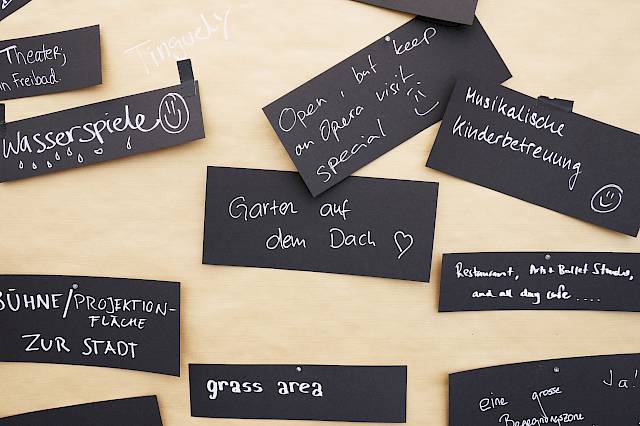 Theater;
in Freibad.
Tinguely
Wasserspiele
Open, but keep
an Opera visit
special
Musikalische
Kinderbetreuung
Garten auf
dem Dach
Restaurant, Art + Ballet Studio,
and all day cafe ....
BÜHNE/PROJEKTION-
FLÄCHE
ZUR STADT
grass area
Ja!
eine grosse
Begegnungszone